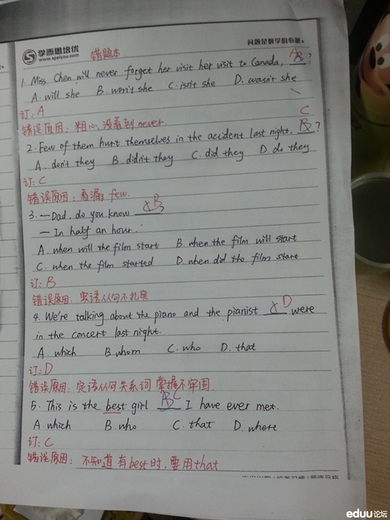 学而思培优
www.speiyou.com
错题本
1. Miss Chen will never forget her visit her visit to Canada, A?
A. will she B. won't she C. isn't she D. wasn't she
订: A
错误原因: 粗心, 没看到 never
2. Few of them hurt themselves in the accident last night, B? C
A. don't they B. didn't they C. did they D. do they
订: C
错误原因: 看漏 few.
3. — Dad, do you know B
— In half an hour.
A. when will the film start B. when the film will start
C. when the film started D. when did the film start
订: B
错误原因: 宾语从句不扎实
4. We're talking about the piano and the pianist D were
in the concert last night.
A. which B. whom C. who D. that
订: D
错误原因: 定语从句关系词 掌握不牢固
5. This is the best girl B C I have ever met.
A. which B. who C. that D. where
订: C
错误原因: 不知道有 best 时, 要用 that
eduu论坛